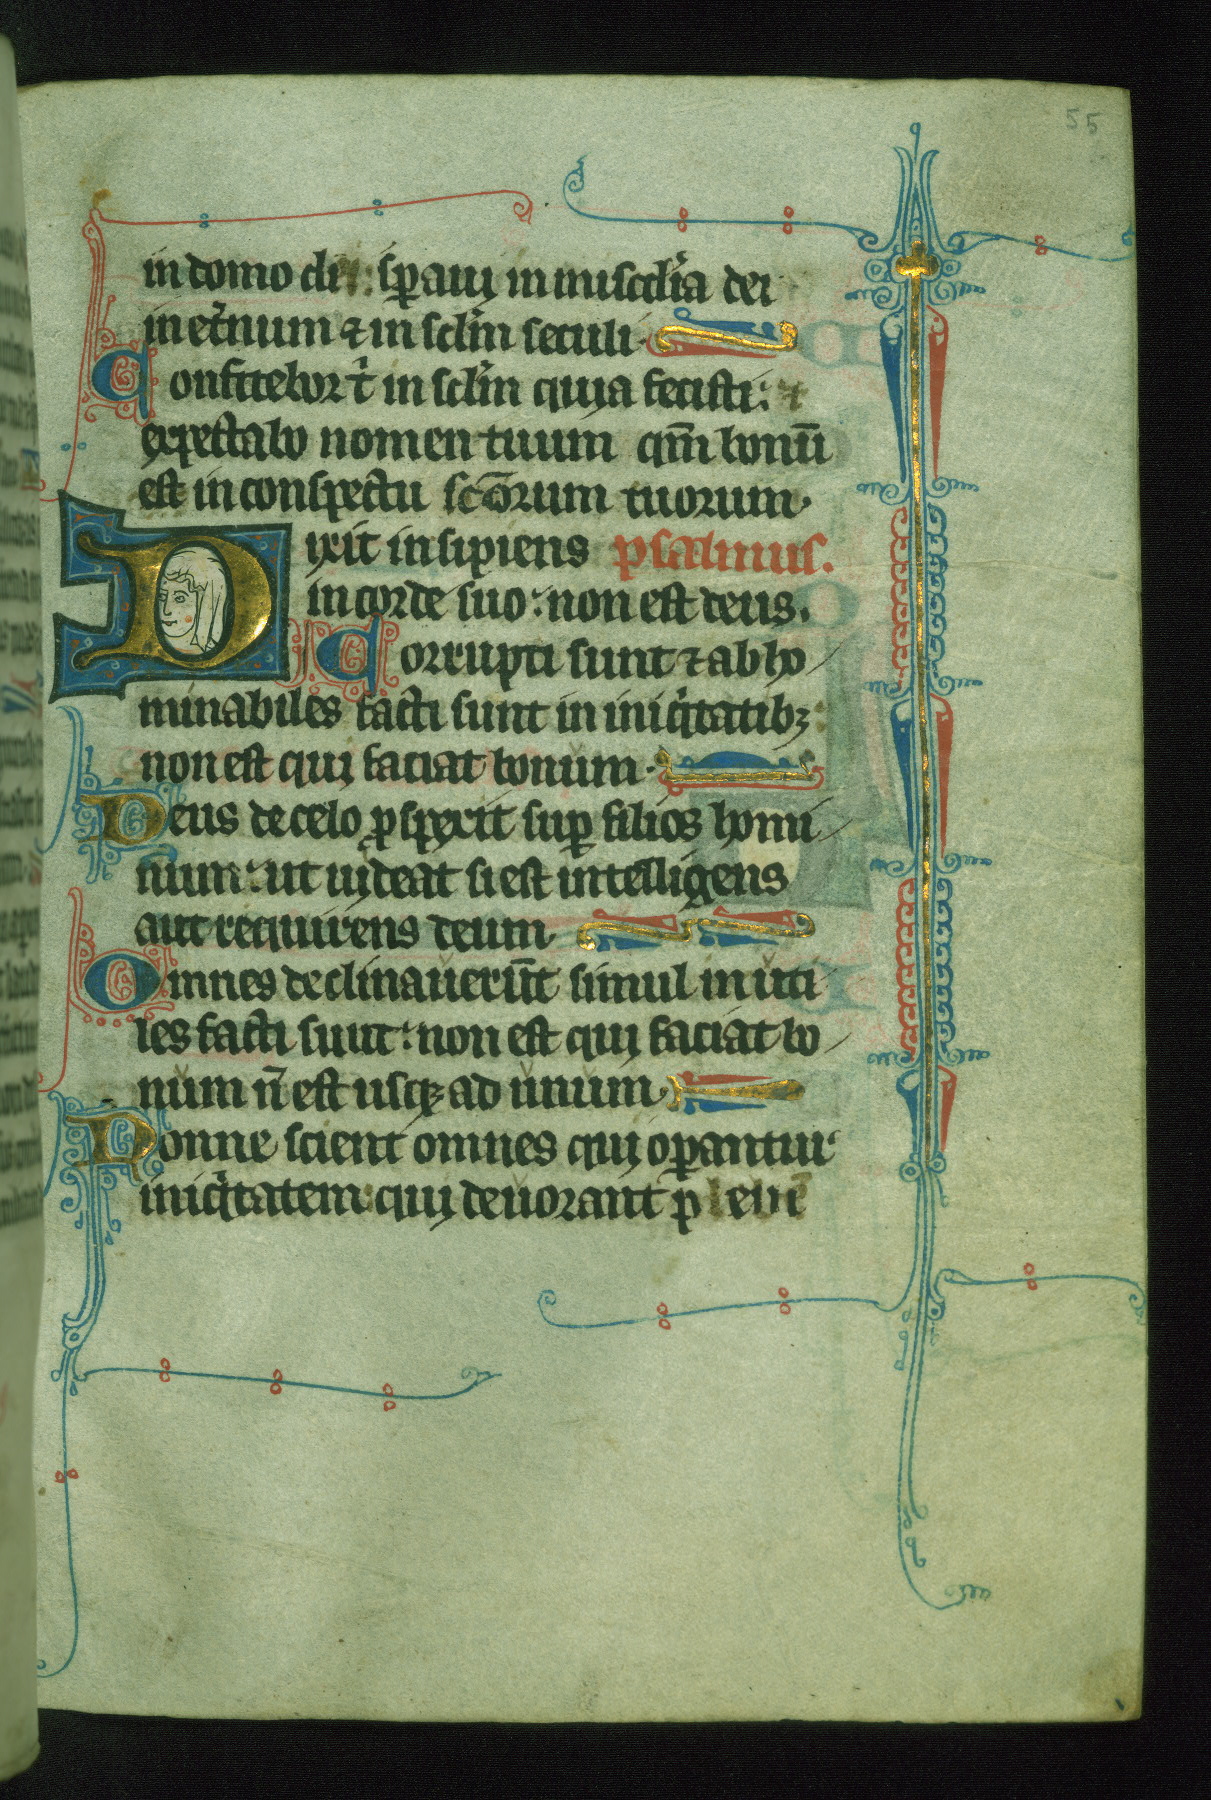 55
in domo di : sꝑauı in misc̄dia dei
in et̄num ⁊ in sclm̄ seculi
Confitebor t̄ in sclm̄ quia fecisti:
expectabo nomen tuum qm̄ bonū
est in conspectu sc̄orum tuorum
Dixit insipiens psalmus.
in corde suo : non est deus.
Corrupti sunt ⁊ abho
minabiles facti sunt in iniq̇tatibꝫ
non est qui faciat bonum
Deus de celo ꝓspexit suꝑ filios homi
num : ut uideat si est intelligens
aut requirens deum
Omnes declinauerūt simul inuti
les facti sunt : non est qui faciat bo
num n̄ est usqꝫ ad unum
Nonne scient omnes qui oꝑantur
iniq̇tatem qui deuorant